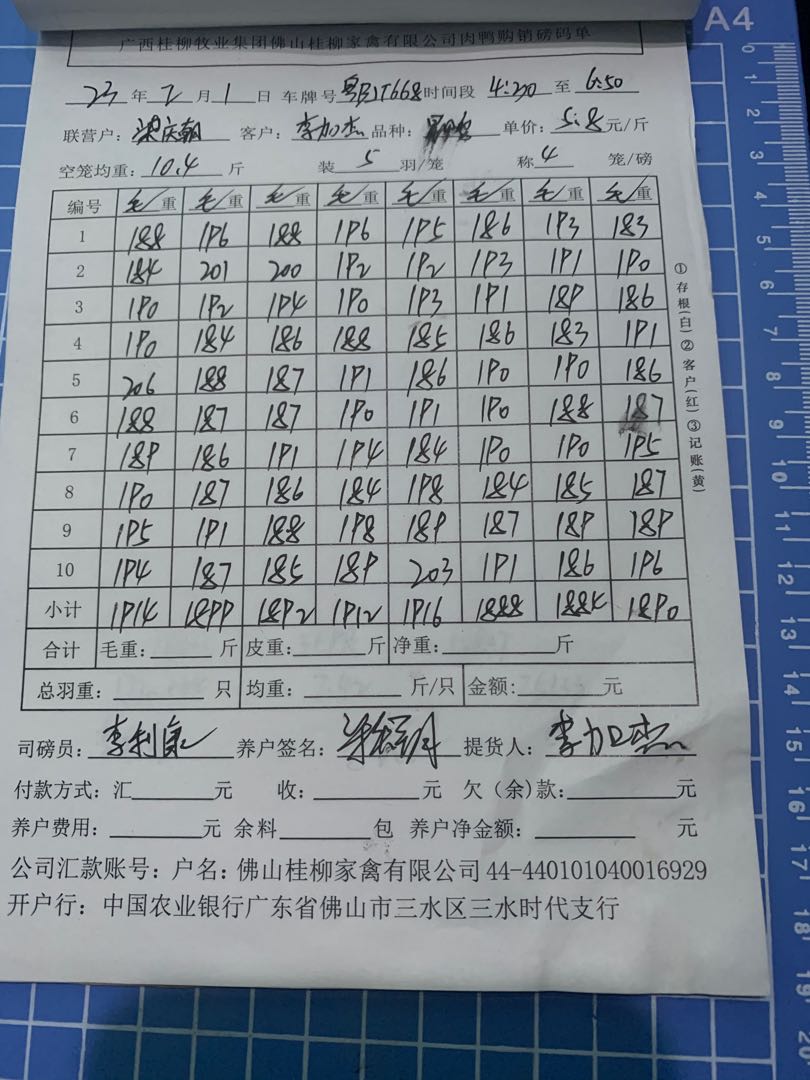 A4
广西桂柳牧业集团佛山桂柳家禽有限公司肉鸭购销磅码单
23 年 2 月 1 日 车牌号 粤BJT668 时间段 4:20 至 6:50
联营户: 梁庆朝 客户: 李加杰 品种: 单价: 5.8 元/斤
空笼均重: 10.4 斤 装 5 羽/笼 称 4 笼/磅
编号 毛/重 毛/重 毛/重 毛/重 毛/重 毛/重 毛/重 毛/重
1 188 196 188 196 195 186 193 183
2 184 201 200 192 192 193 191 190
3 190 192 194 190 193 191 189 186
4 190 184 186 188 185 186 183 191
5 206 188 187 191 186 190 190 186
6 188 187 187 190 191 190 188 187
7 189 186 191 194 184 190 190 195
8 190 187 186 184 198 184 185 187
9 195 191 188 198 189 187 189 189
10 194 187 185 189 203 191 186 196
小计 1914 1899 1892 1912 1916 1888 1884 1890
合计 毛重: 斤 皮重: 斤 净重: 斤
总羽重: 只 均重: 斤/只 金额: 元
①存根(白)②客户(红)③记账(黄)
司磅员: 李利康 养户签名: 提货人: 李加杰
付款方式: 汇 元 收: 元 欠(余)款: 元
养户费用: 元 余料 包 养户净金额: 元
公司汇款账号: 户名: 佛山桂柳家禽有限公司 44-440101040016929
开户行: 中国农业银行广东省佛山市三水区三水时代支行
0
1
2
3
4
5
6
7
8
9
10
11
12
13
14
15
16
17
18
19
20